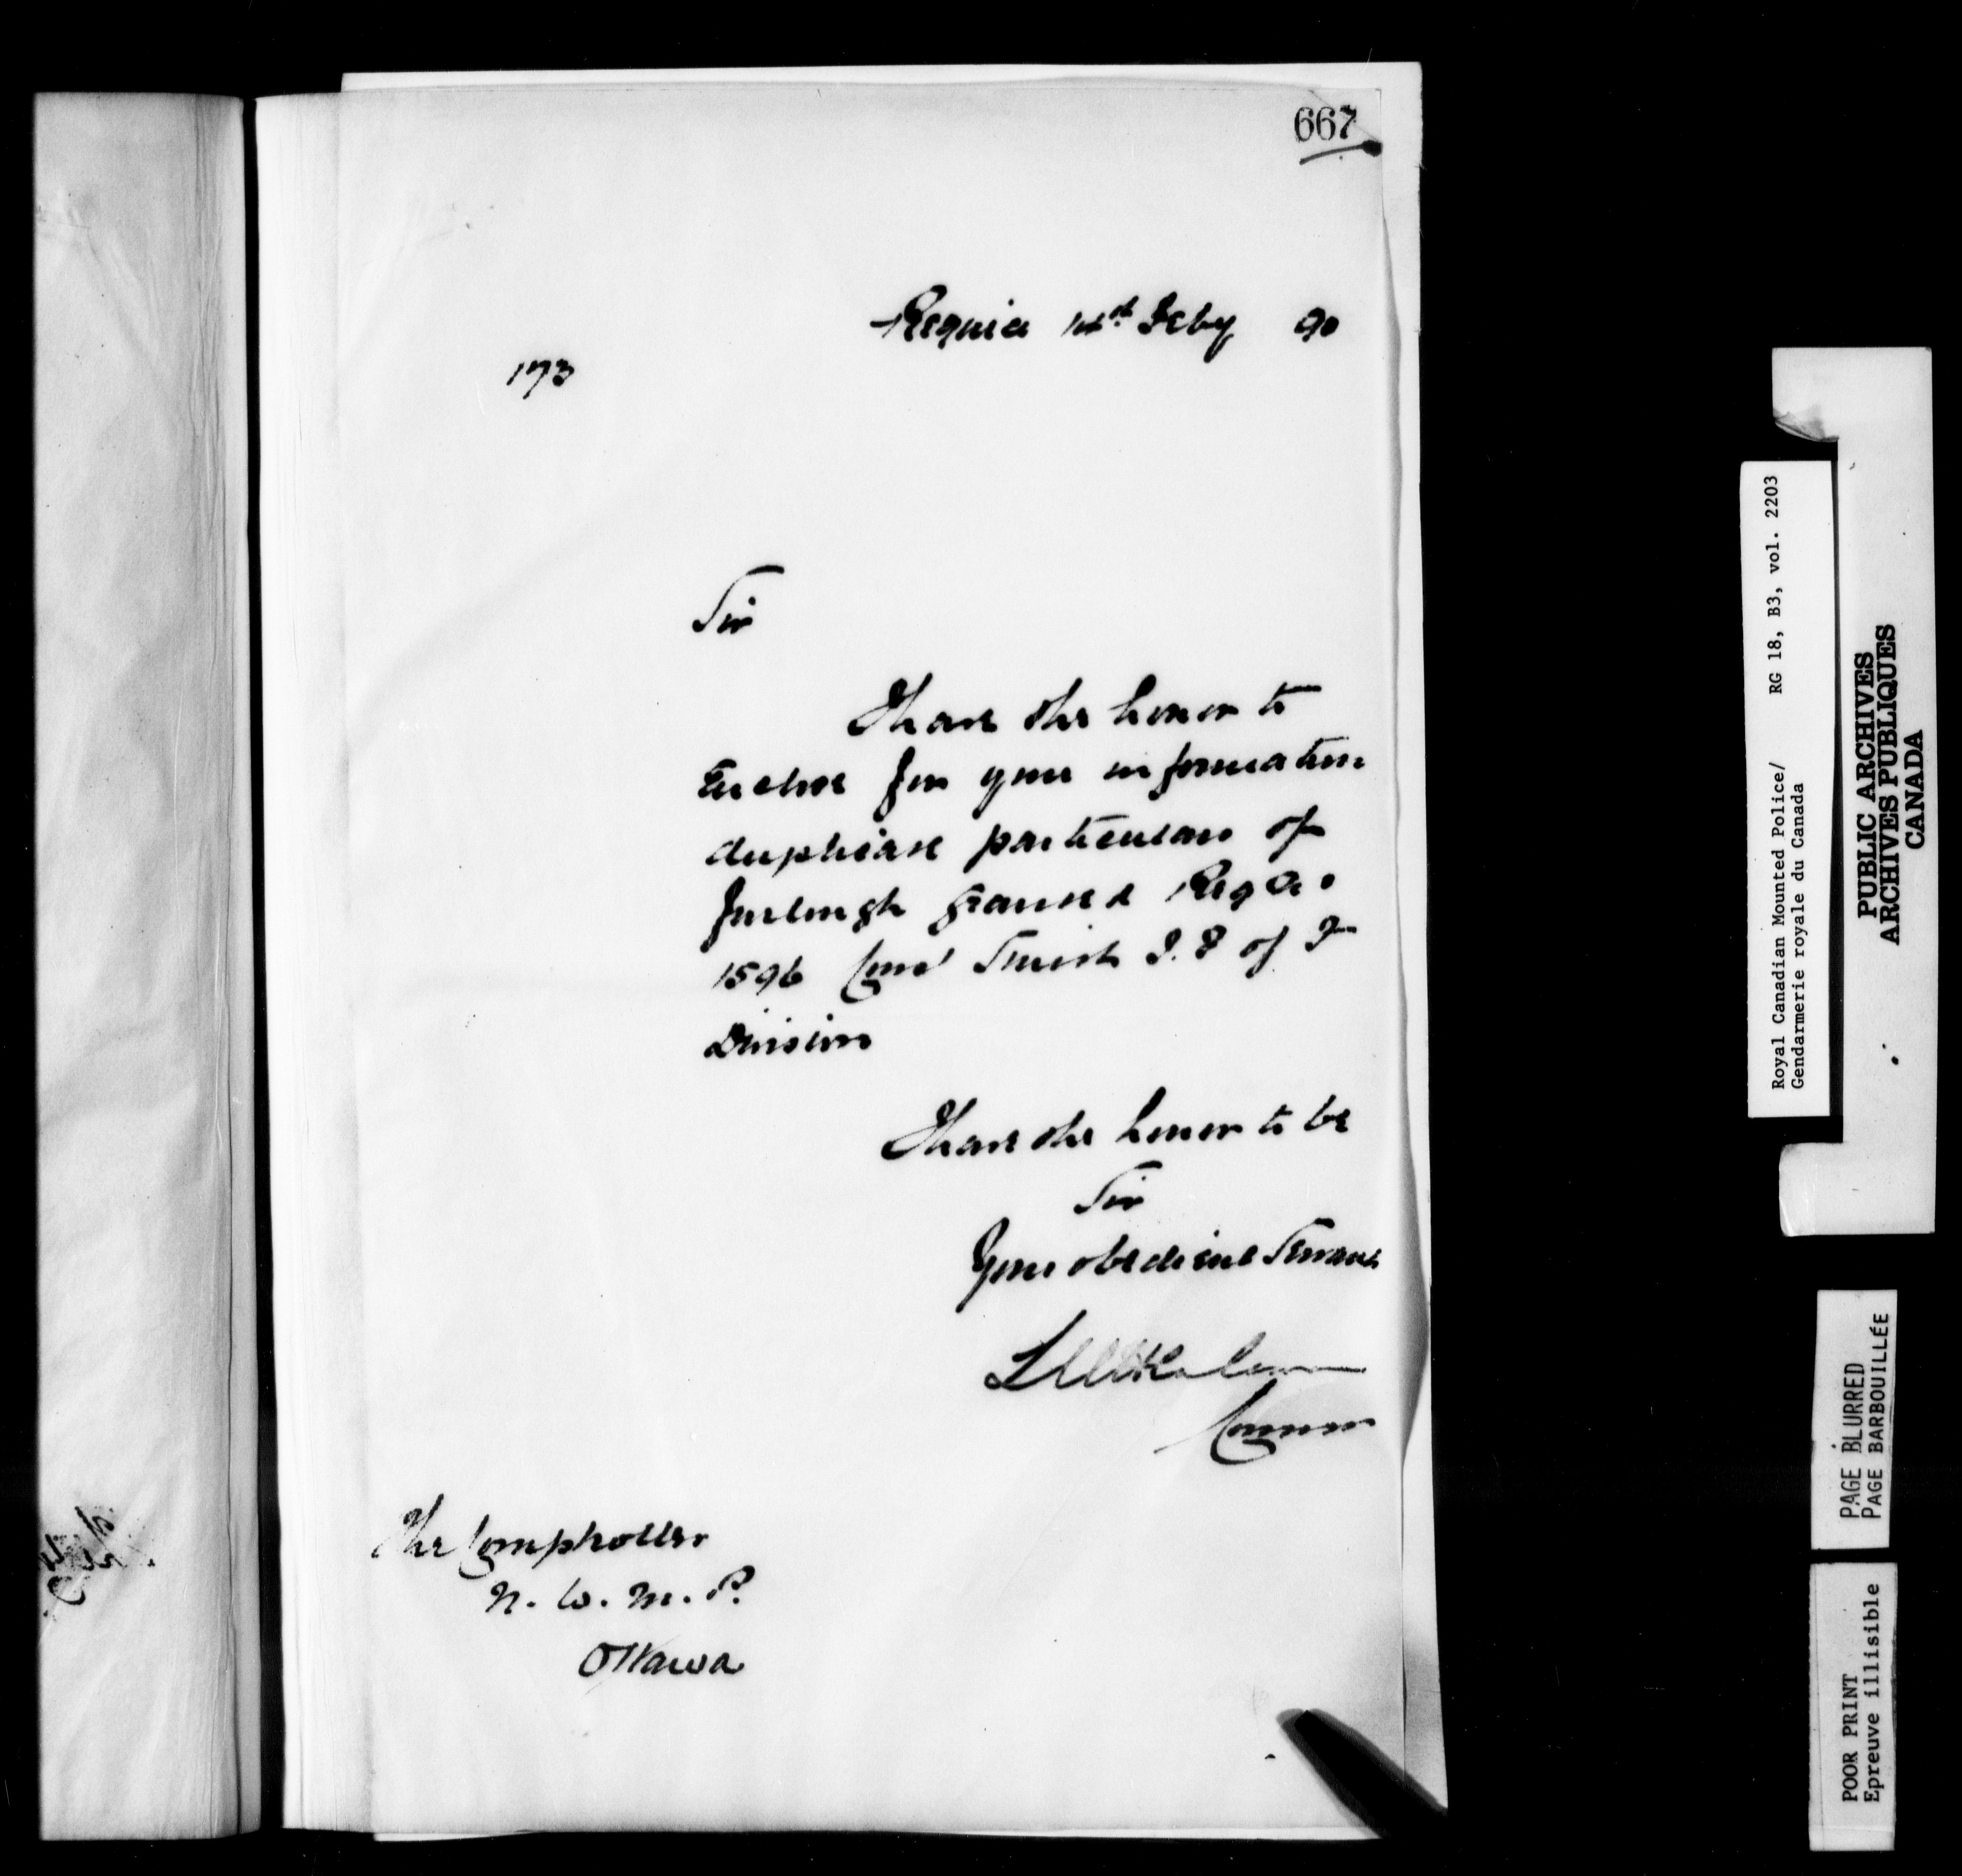 667
Regina 14th Feby 90
173
Sir
I have the honor to
Enclose for your information
duplicate particulars of
furlough granted Reg. No
1596 Const Smith J. of
Division
I have the honor to be
Sir
Your obedient Servant
Commr
The Comptroller
N. W. M. P.
Ottawa
Royal Canadian Mounted Police/ RG 18, B3, vol. 2203
Gendarmerie royale du Canada
PUBLIC ARCHIVES
ARCHIVES PUBLIQUES
CANADA
PAGE BLURRED
PAGE BARBOUILLÉE
POOR PRINT
Epreuve illisible